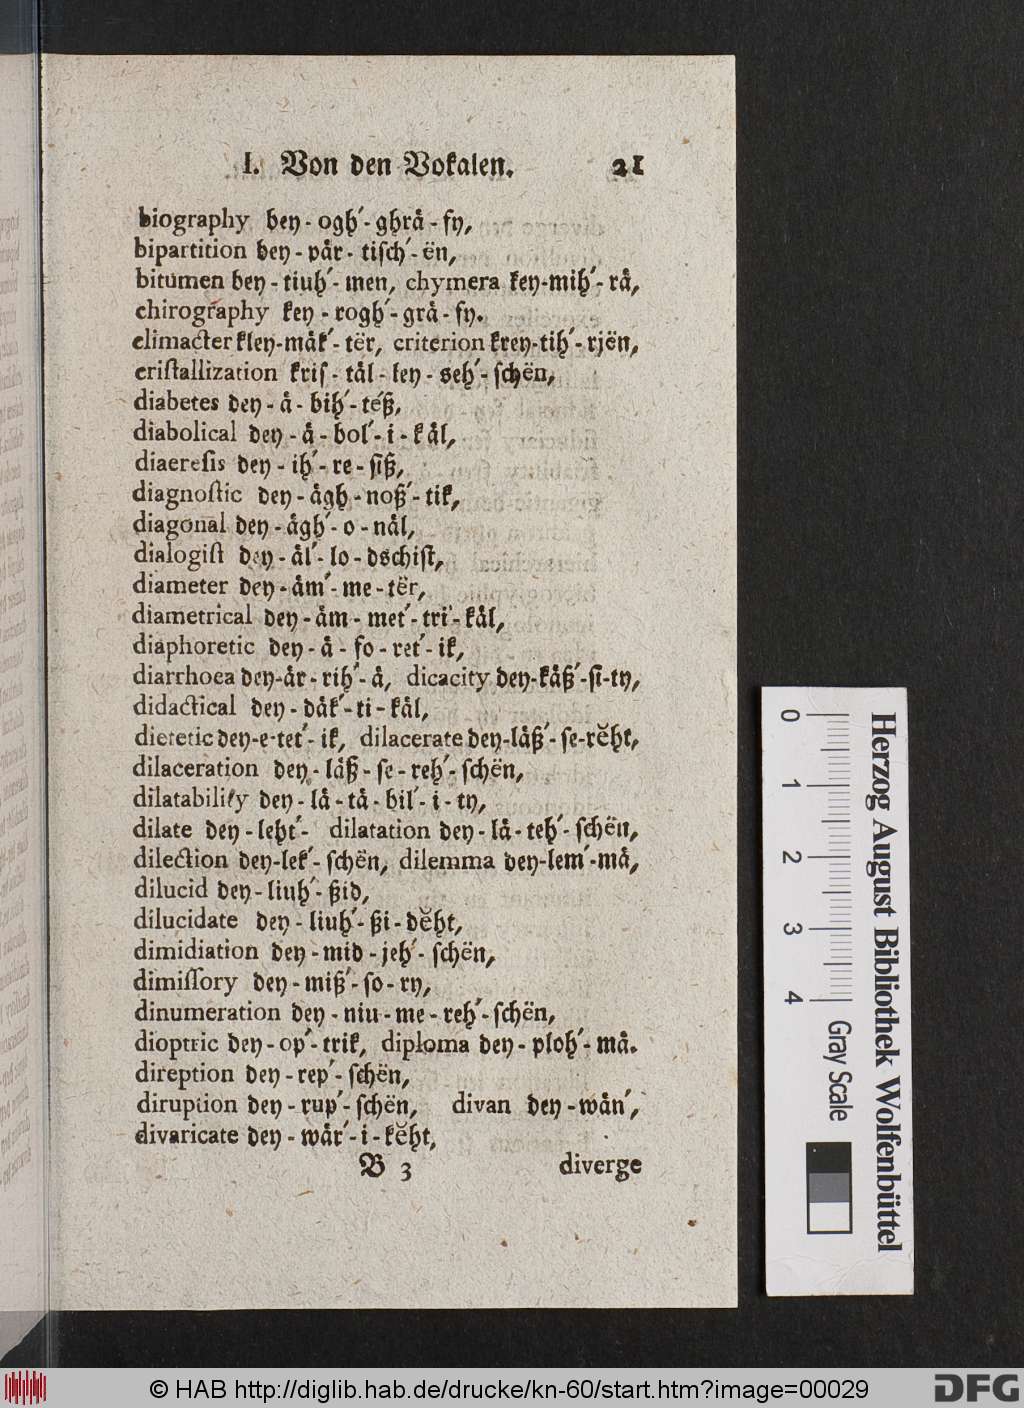 I. Von den Vokalen. 21
biography bey-ogh́-ghrå-fy,
bipartition bey-pår-tiſch́-ën,
bitumen bey-tiuh́-men, chymera key-mih́-rå,
chirography key-rogh́-grå-fy.
climacter kley-måḱ-tër, criterion krey-tih́-rjën,
criſtallization kriſ-tål-ley-seh́-ſchën,
diabetes dey-å-bih́-téß,
diabolical dey-å-boĺ-i-kål,
diaereſis dey-ih́-re-ſiß,
diagnoſtic dey-ågh-noß́-tik,
diagonal dey-ågh́-o-nål,
dialogiſt dey-åĺ-lo-dschiſt,
diameter dey-åḿ-me-tër,
diametrical dey-åm-met́-tri-kål,
diaphoretic dey-å-fo-ret́-ik,
diarrhoea dey-år-rih́-å, dicacity dey-kåß́-ſi-ty,
didactical dey-dåḱ-ti-kål,
dietetic dey-e-tet́-ik, dilacerate dey-låß́-ſe-rĕht,
dilaceration dey-låß-ſe-reh́-ſchën,
dilatability dey-lå-tå-biĺ-i-ty,
dilate dey-leht́- dilatation dey-lå-teh́-ſchën,
dilection dey-leḱ-ſchën, dilemma dey-leḿ-må,
dilucid dey-liuh́-ßid,
dilucidate dey-liuh́-ßi-dĕht,
dimidiation dey-mid-jeh́-ſchën,
dimiſſory dey-miß́-ſo-ry,
dinumeration dey-niu-me-reh́-ſchën,
dioptric dey-oṕ-trik, diploma dey-ploh́-må.
direption dey-reṕ-ſchën,
diruption dey-ruṕ-ſchën, divan dey-wåń,
divaricate dey-wåŕ-i-kĕht,
B 3 diverge
0 1 2 3 4
Herzog August Bibliothek Wolfenbüttel
Gray Scale
© HAB http://diglib.hab.de/drucke/kn-60/start.htm?image=00029
DFG